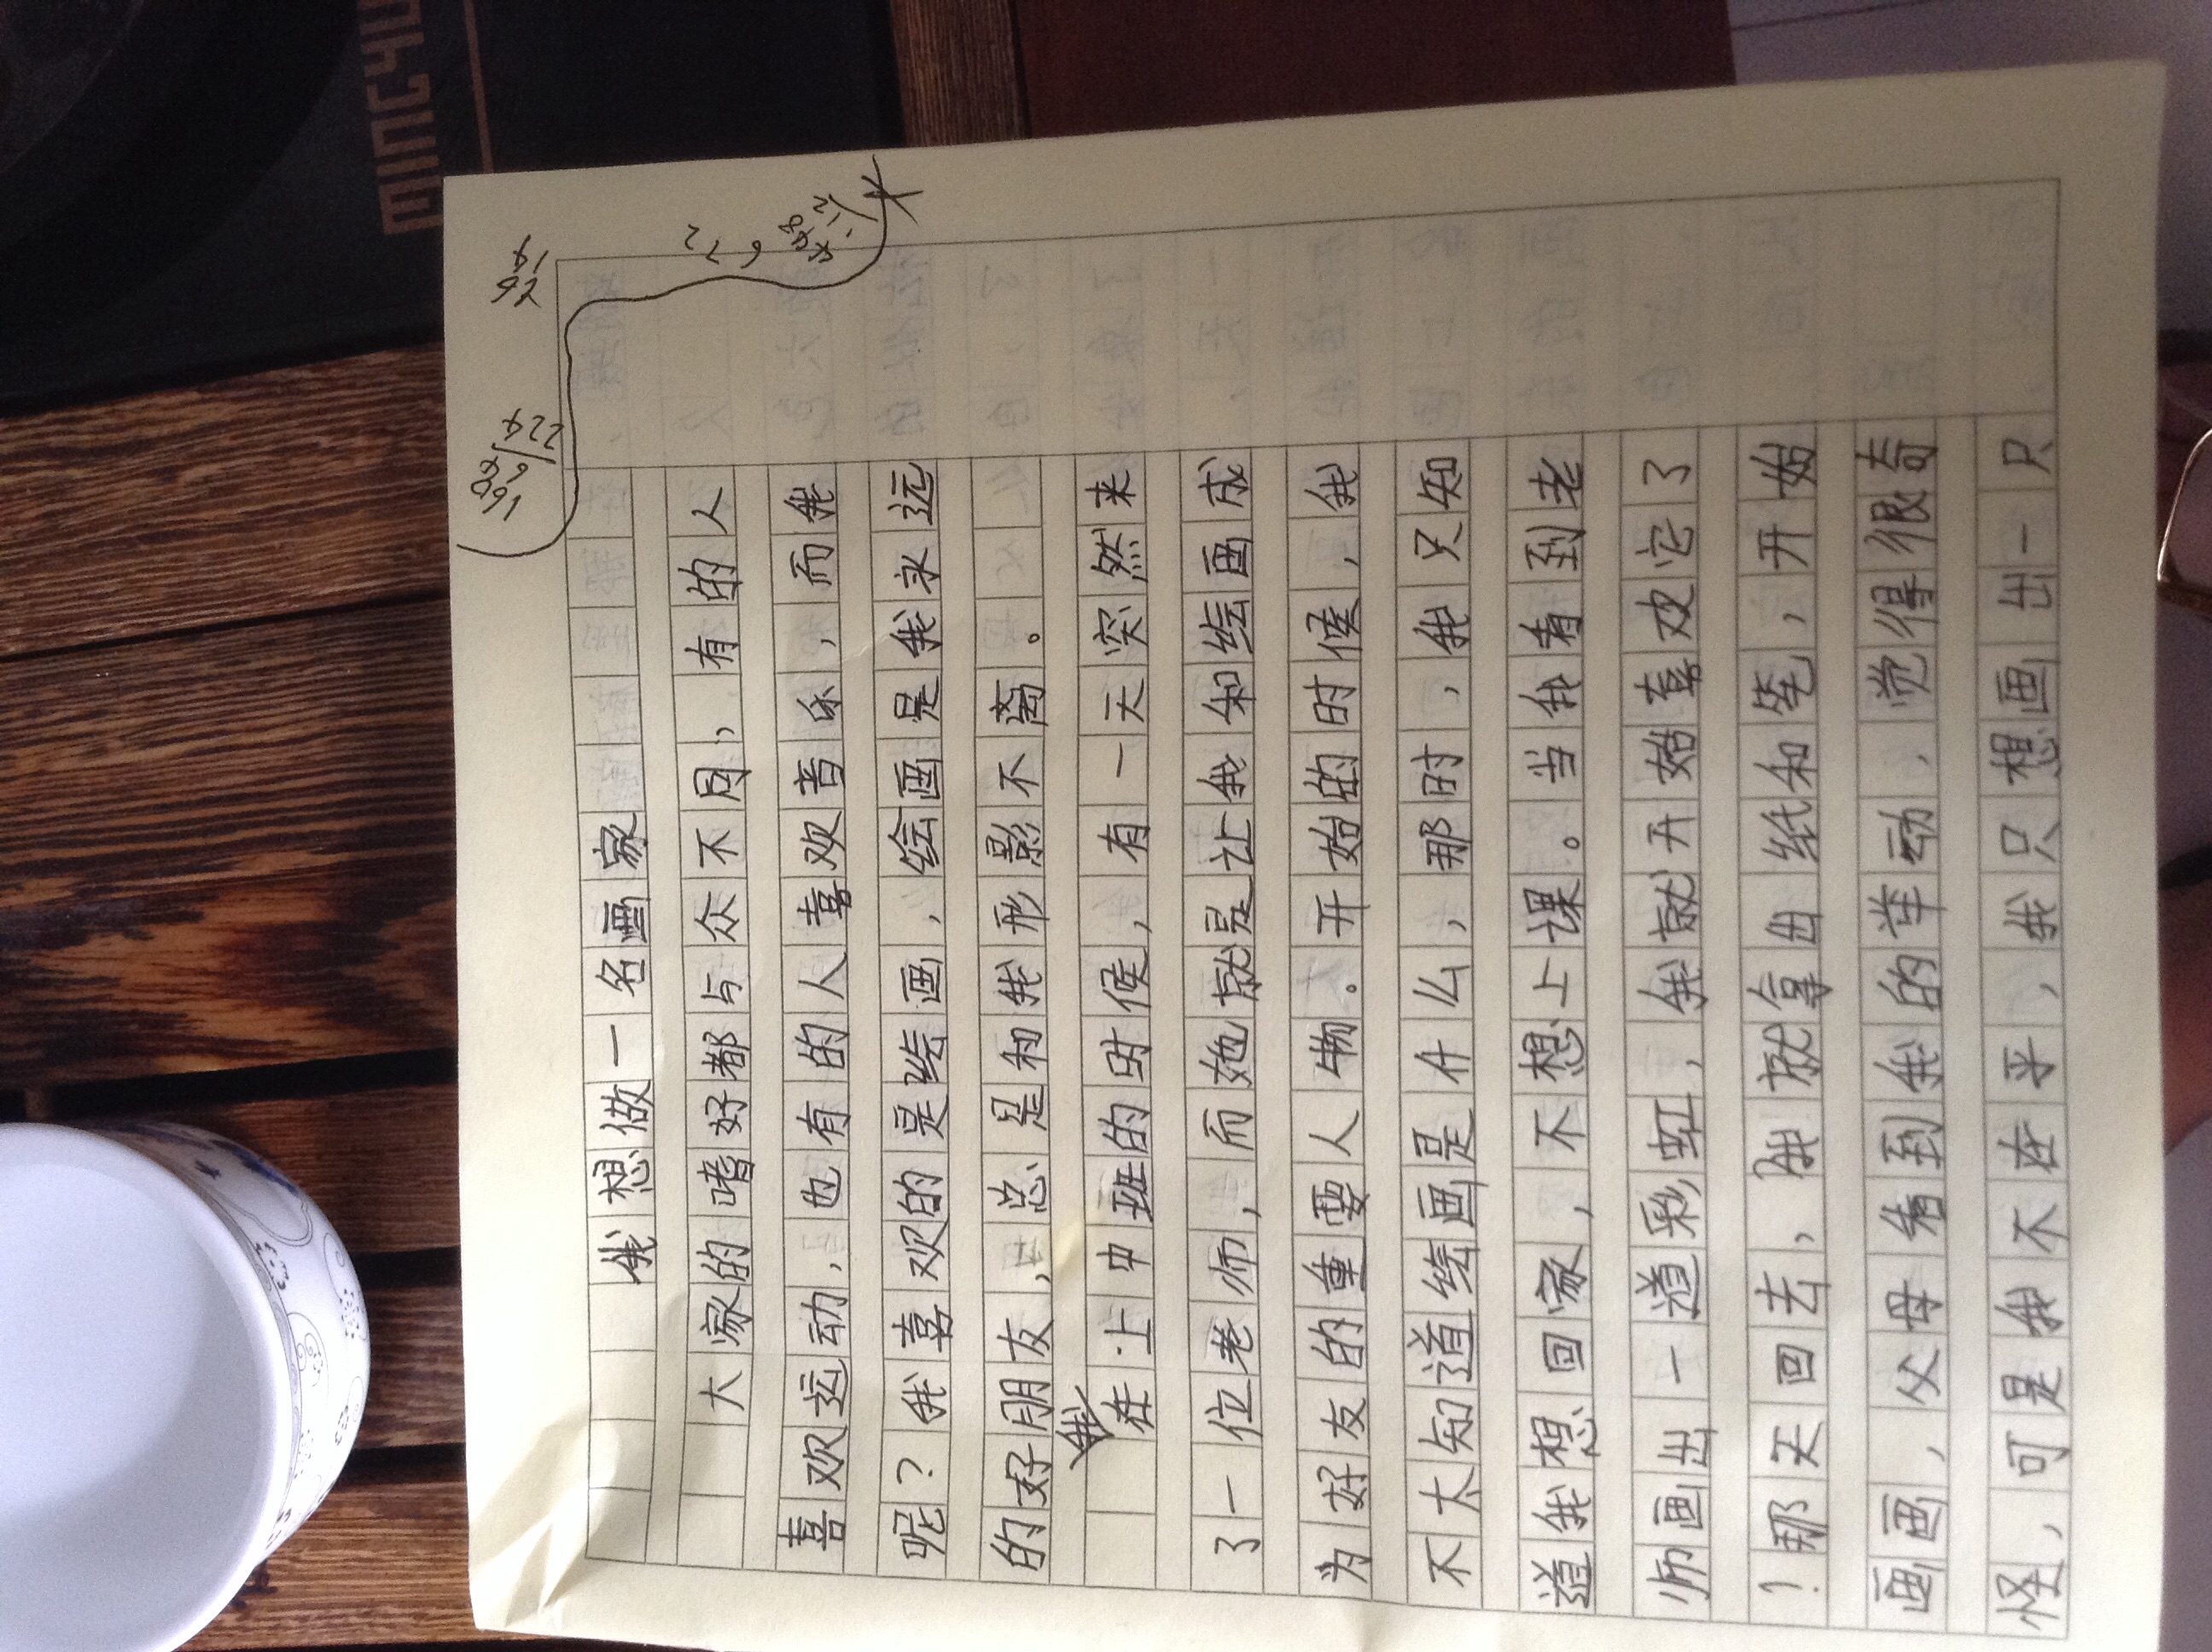 我想做一名画家
大家的嗜好都与众不同，有的人
喜欢运动，也有的人喜欢音乐，而我
呢？我喜欢的是绘画，绘画是我永远
的好朋友，总是和我形影不离。
我在上中班的时候，有一天突然来
了一位老师，而她就是让我和绘画成
为好友的重要人物。开始的时候，我
不太知道绘画是什么，那时，我只知
道我想回家，不想上课。当我看到老
师画出一道彩虹，我就开始喜欢它了
！那天回去，我就拿出纸和笔，开始
画画，父母看到我的举动，觉得很奇
怪，可是我不在乎，我只想画出一只
MINGYU